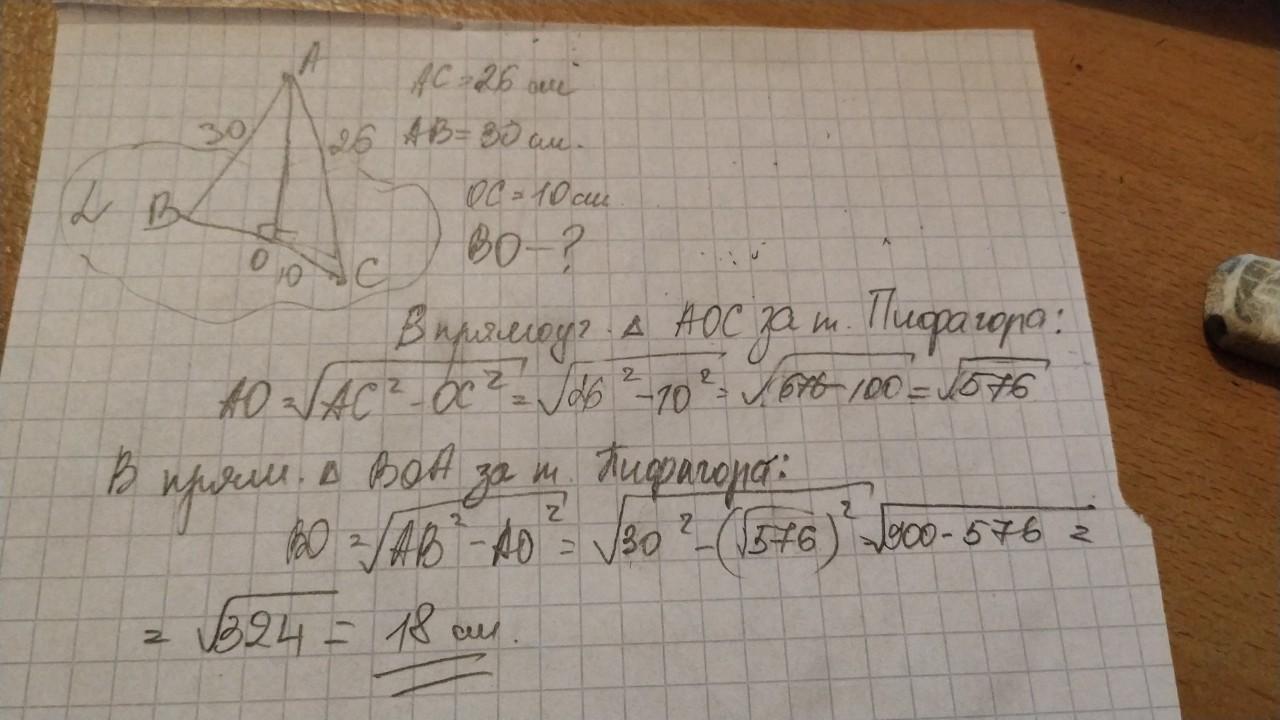 A
30
26
α
B
O
10
C
AC = 26 см
AB = 30 см.
OC = 10 см
BO – ?
В прямоуг. Δ AOC за т. Пифагора:
AO = √AC² - OC² = √26² - 10² = √676 - 100 = √576
В прям. Δ BOA за т. Пифагора:
BO = √AB² - AO² = √30² - (√576)² = √900 - 576 =
= √324 = 18 см.